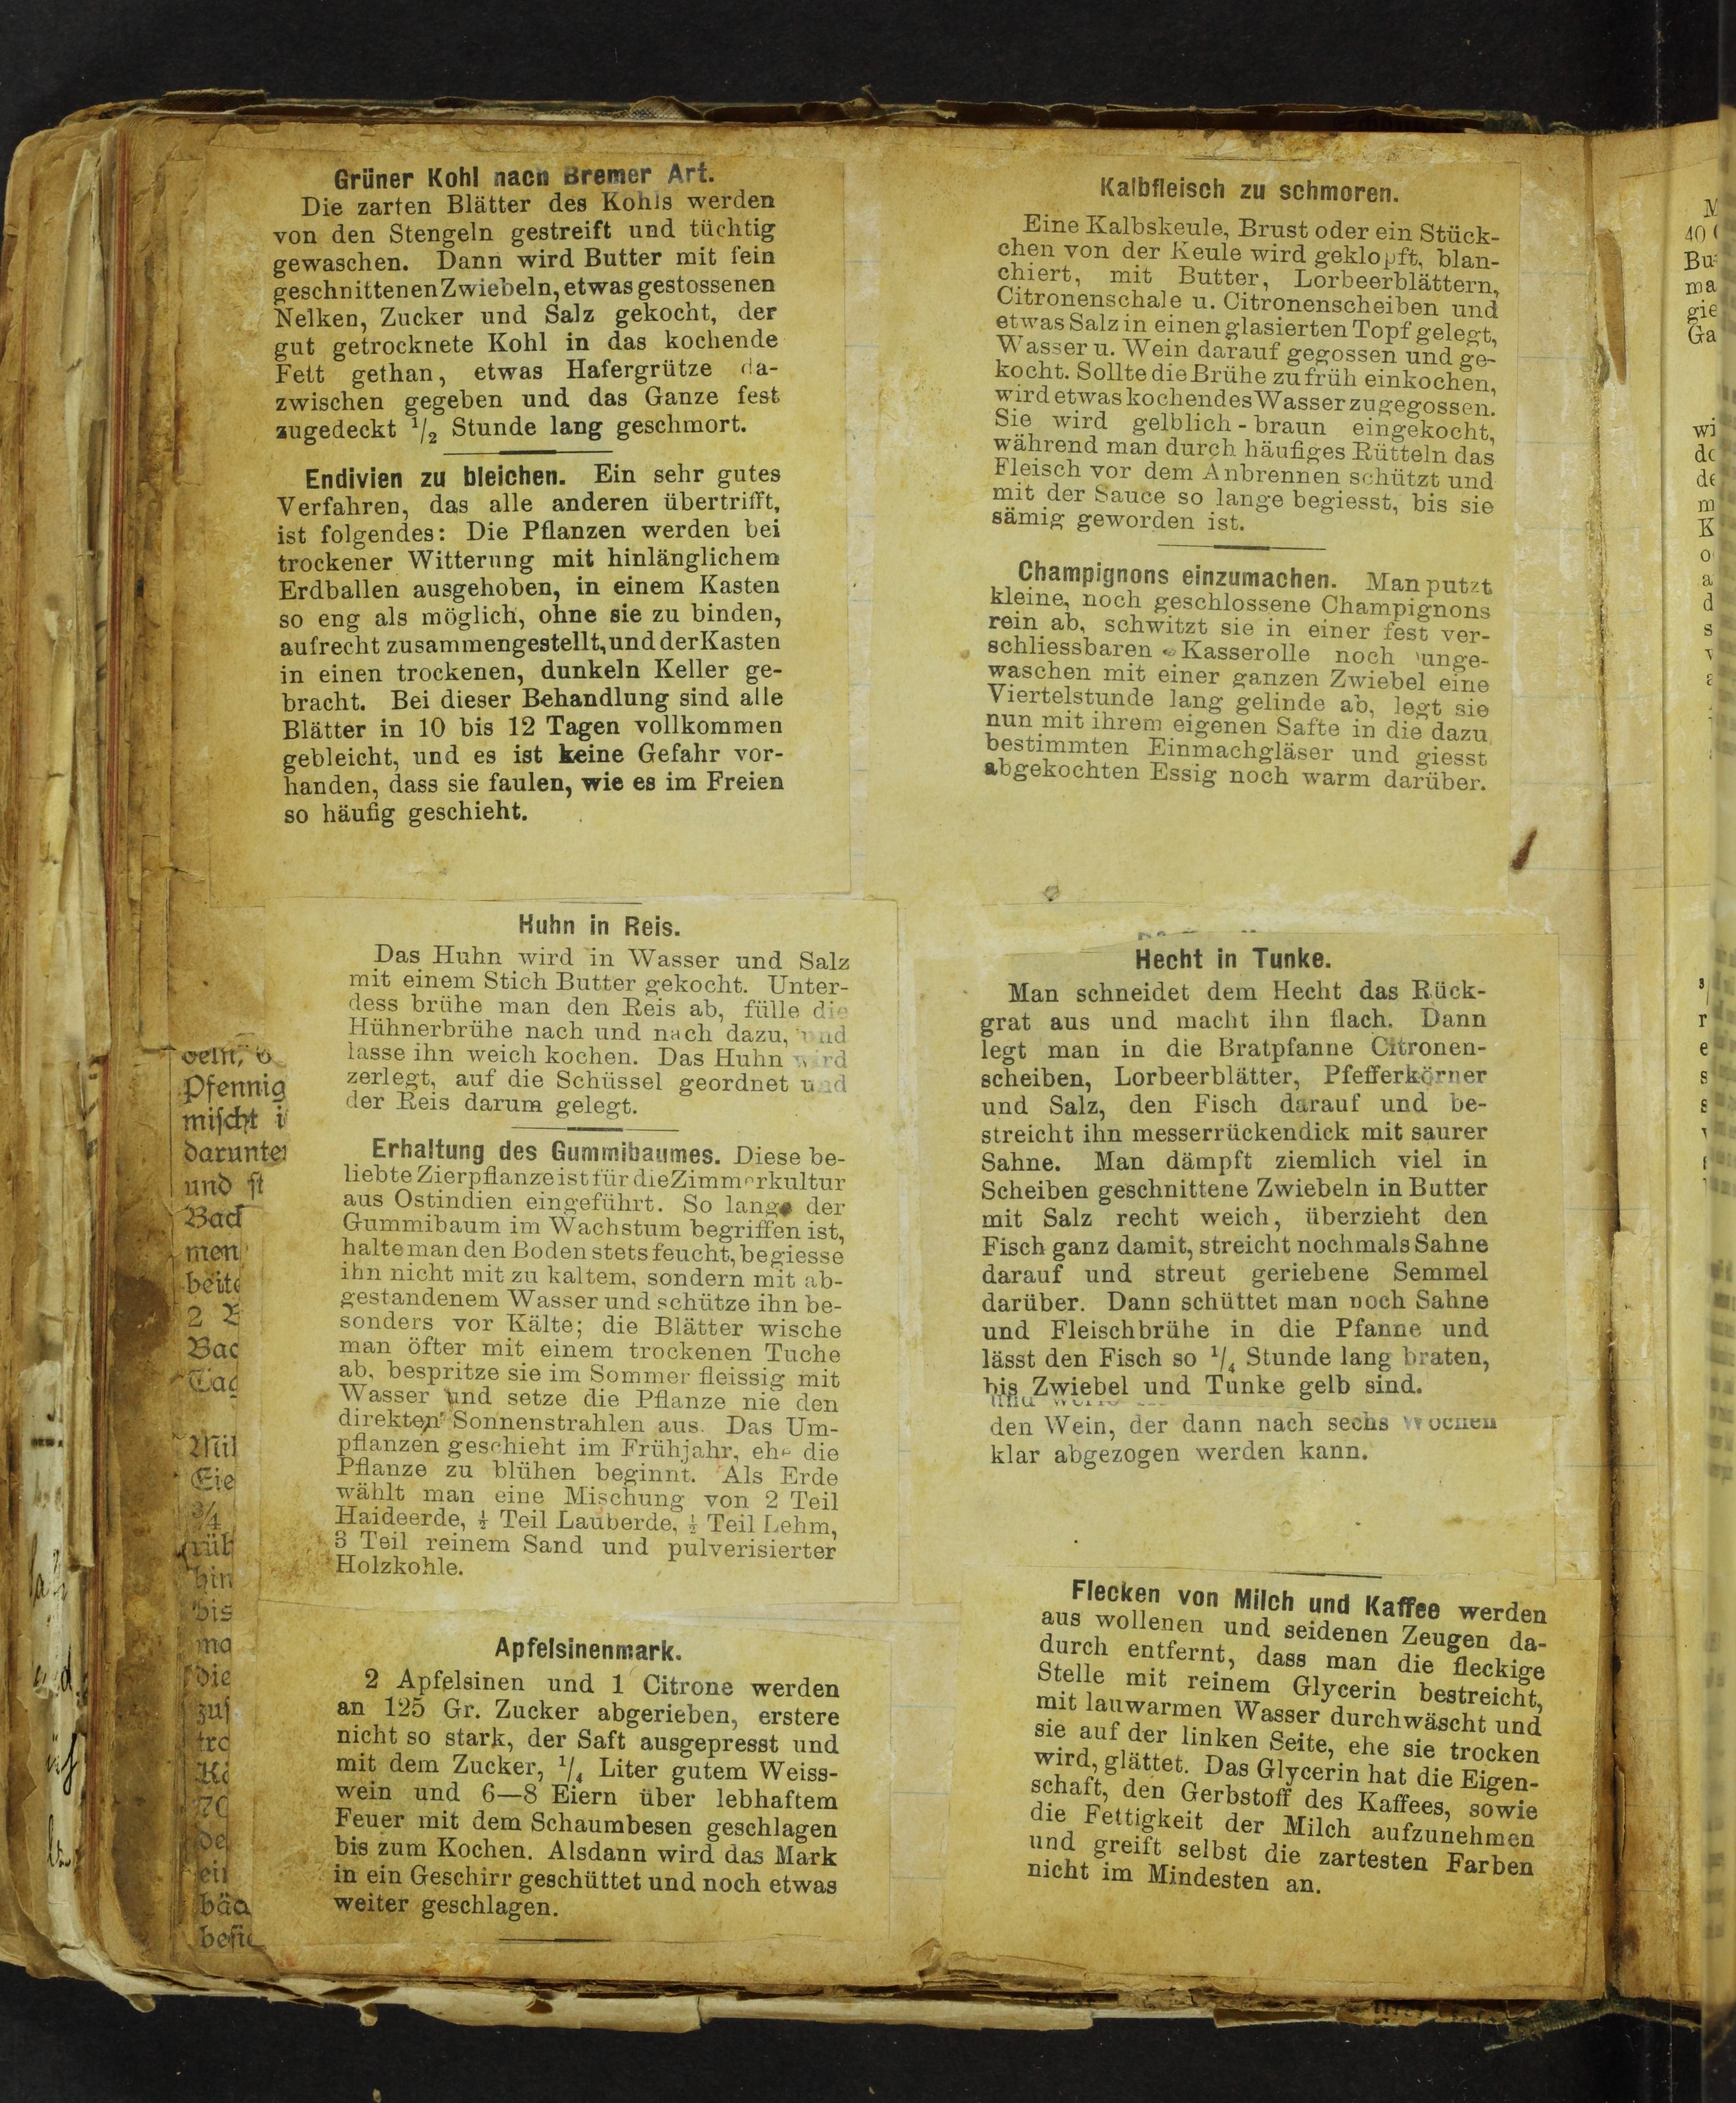 Grüner Kohl nach Bremer Art.
Die zarten Blätter des Kohls werden
von den Stengeln gestreift und tüchtig
gewaschen. Dann wird Butter mit fein
geschnittenen Zwiebeln, etwas gestossenen
Nelken, Zucker und Salz gekocht, der
gut getrocknete Kohl in das kochende
Fett gethan, etwas Hafergrütze da-
zwischen gegeben und das Ganze fest
zugedeckt 1/2 Stunde lang geschmort.
Endivien zu bleichen. Ein sehr gutes
Verfahren, das alle anderen übertrifft,
ist folgendes: Die Pflanzen werden bei
trockener Witterung mit hinlänglichem
Erdballen ausgehoben, in einem Kasten
so eng als möglich, ohne sie zu binden,
aufrecht zusammengestellt, und der Kasten
in einen trockenen, dunkeln Keller ge-
bracht. Bei dieser Behandlung sind alle
Blätter in 10 bis 12 Tagen vollkommen
gebleicht, und es ist keine Gefahr vor-
handen, dass sie faulen, wie es im Freien
so häufig geschieht.
Huhn in Reis.
Das Huhn wird in Wasser und Salz
mit einem Stich Butter gekocht. Unter-
dess brühe man den Reis ab, fülle die
Hühnerbrühe nach und nach dazu, und
lasse ihn weich kochen. Das Huhn wird
zerlegt, auf die Schüssel geordnet und
der Reis darum gelegt.
Erhaltung des Gummibaumes. Diese be-
liebte Zierpflanze ist für die Zimmerkultur
aus Ostindien eingeführt. So lange der
Gummibaum im Wachstum begriffen ist,
halte man den Boden stets feucht, begiesse
ihn nicht mit zu kaltem, sondern mit ab-
gestandenem Wasser und schütze ihn be-
sonders vor Kälte; die Blätter wische
man öfter mit einem trockenen Tuche
ab, bespritze sie im Sommer fleissig mit
Wasser und setze die Pflanze nie den
direkten Sonnenstrahlen aus. Das Um-
pflanzen geschieht im Frühjahr, ehe die
Pflanze zu blühen beginnt. Als Erde
wählt man eine Mischung von 2 Teil
Haideerde, ½ Teil Lauberde, ½ Teil Lehm,
3 Teil reinem Sand und pulverisierter
Holzkohle.
Apfelsinenmark.
2 Apfelsinen und 1 Citrone werden
an 125 Gr. Zucker abgerieben, erstere
nicht so stark, der Saft ausgepresst und
mit dem Zucker, 1/4 Liter gutem Weiss-
wein und 6—8 Eiern über lebhaftem
Feuer mit dem Schaumbesen geschlagen
bis zum Kochen. Alsdann wird das Mark
in ein Geschirr geschüttet und noch etwas
weiter geschlagen.
Kalbfleisch zu schmoren.
Eine Kalbskeule, Brust oder ein Stück-
chen von der Keule wird geklopft, blan-
chiert, mit Butter, Lorbeerblättern,
Citronenschale u. Citronenscheiben und
etwas Salz in einen glasierten Topf gelegt,
Wasser u. Wein darauf gegossen und ge-
kocht. Sollte die Brühe zu früh einkochen,
wird etwas kochendes Wasser zugegossen.
Sie wird gelblich-braun eingekocht,
während man durch häufiges Rütteln das
Fleisch vor dem Anbrennen schützt und
mit der Sauce so lange begiesst, bis sie
sämig geworden ist.
Champignons einzumachen. Man putzt
kleine, noch geschlossene Champignons
rein ab, schwitzt sie in einer fest ver-
schliessbaren Kasserolle noch unge-
waschen mit einer ganzen Zwiebel eine
Viertelstunde lang gelinde ab, legt sie
nun mit ihrem eigenen Safte in die dazu
bestimmten Einmachgläser und giesst
abgekochten Essig noch warm darüber.
Hecht in Tunke.
Man schneidet dem Hecht das Rück-
grat aus und macht ihn flach. Dann
legt man in die Bratpfanne Citronen-
scheiben, Lorbeerblätter, Pfefferkörner
und Salz, den Fisch darauf und be-
streicht ihn messerrückendick mit saurer
Sahne. Man dämpft ziemlich viel in
Scheiben geschnittene Zwiebeln in Butter
mit Salz recht weich, überzieht den
Fisch ganz damit, streicht nochmals Sahne
darauf und streut geriebene Semmel
darüber. Dann schüttet man noch Sahne
und Fleischbrühe in die Pfanne und
lässt den Fisch so 1/4 Stunde lang braten,
bis Zwiebel und Tunke gelb sind.
den Wein, der dann nach sechs Wochen
klar abgezogen werden kann.
Flecken von Milch und Kaffee werden
aus wollenen und seidenen Zeugen da-
durch entfernt, dass man die fleckige
Stelle mit reinem Glycerin bestreicht,
mit lauwarmen Wasser durchwäscht und
sie auf der linken Seite, ehe sie trocken
wird, glättet. Das Glycerin hat die Eigen-
schaft, den Gerbstoff des Kaffees, sowie
die Fettigkeit der Milch aufzunehmen
und greift selbst die zartesten Farben
nicht im Mindesten an.